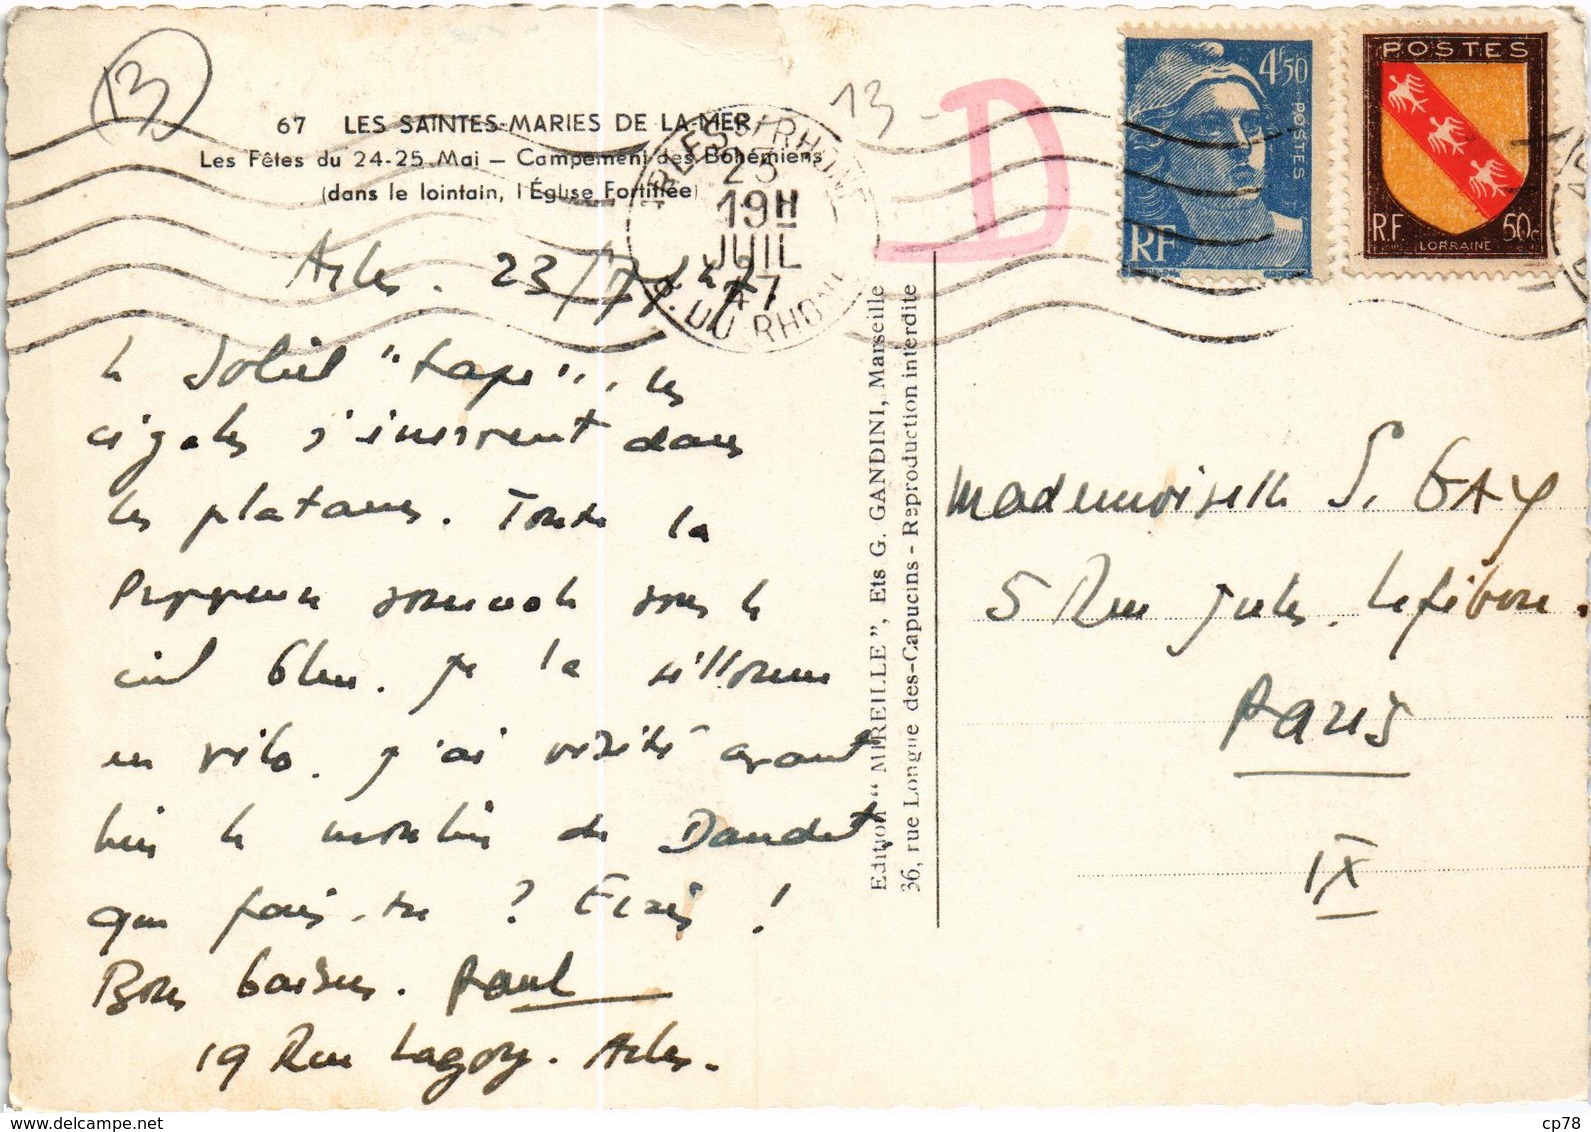 13
13
D
67 LES SAINTES-MARIES DE LA MER
Les Fêtes du 24-25 Mai — Campement des Bohémiens
(dans le lointain, l'Église Fortifiée)
ARLES S/ RHONE
23
19H
JUIL
47
B. DU RHONE
4F50
POSTES
RF
POSTES
R.F
50c
LORRAINE
Arles. 23/7/47
Le Soleil "tape"... les
cigales s'énervent dans
les platanes. Toute la
Provence somnole sous le
ciel bleu. Je la sillonne
en vélo. J'ai visité avant
hier le moulin de Daudet
que fais-tu ? Écris !
Bons baisers. Paul
19 Rue Lagoy. Arles.
Edition "MIREILLE", Ets G. GANDINI, Marseille
36, rue Longue des-Capucins - Reproduction interdite
Mademoiselle S. GAY
5 Rue Jules Lefebvre.
Paris
IX
cp78